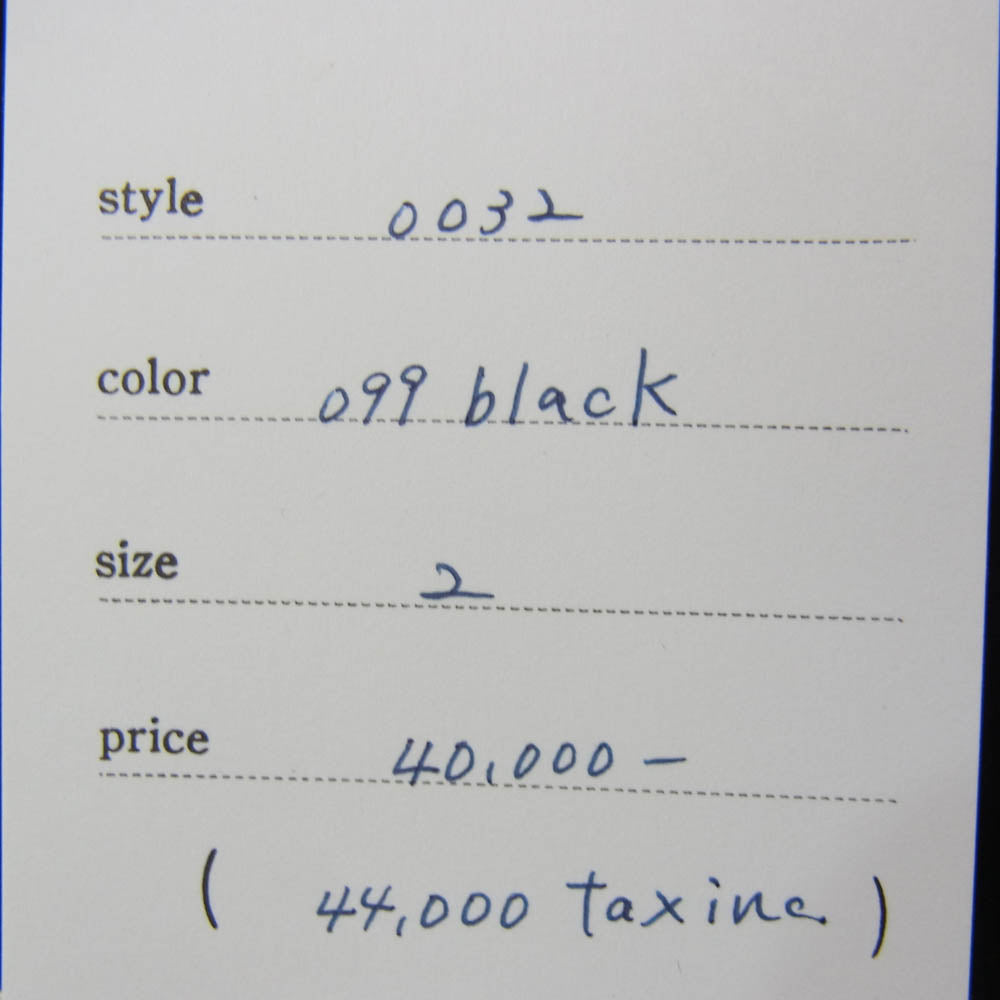 style 0032
color 099 black
size 2
price 40,000 -
( 44,000 tax inc. )